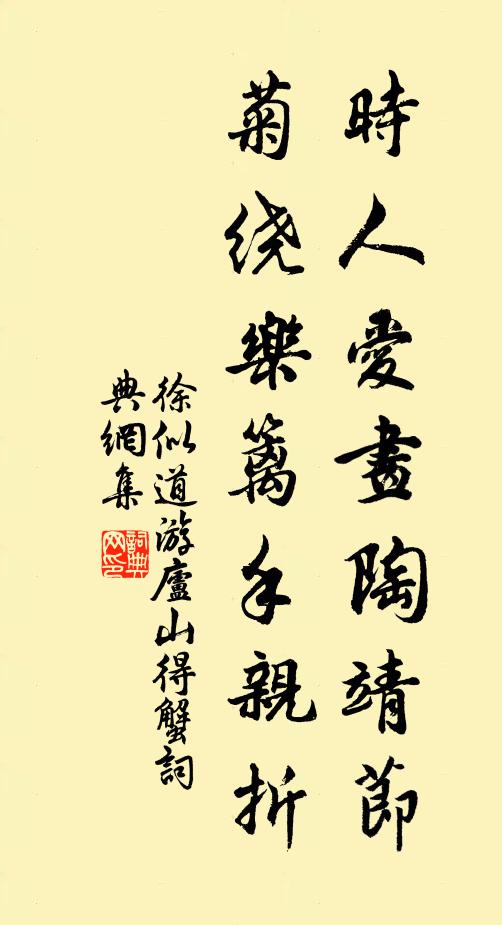 時人愛畫陶靖節
菊绕樂篱手親折
徐似道游廬山得蟹詞
典網集
詞典
网印